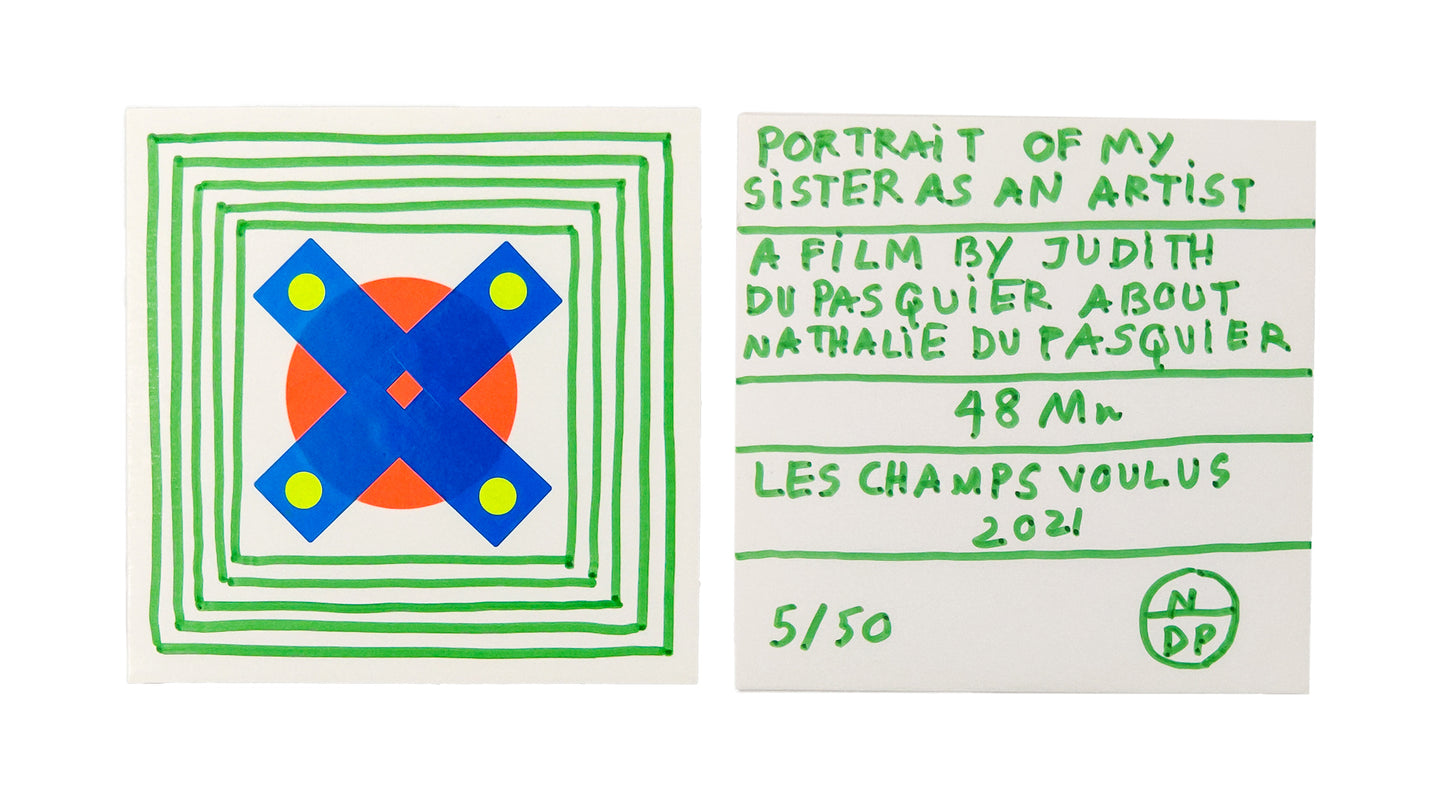 PORTRAiT OF MY
SiSTER AS AN ARTiST
A FiLM BY JUDITH
DU PASQUiER ABOUT
NATHALiE DU PASQUiER
48 Mn
LES CHAMPS VOULUS
2021
5/50
N
DP